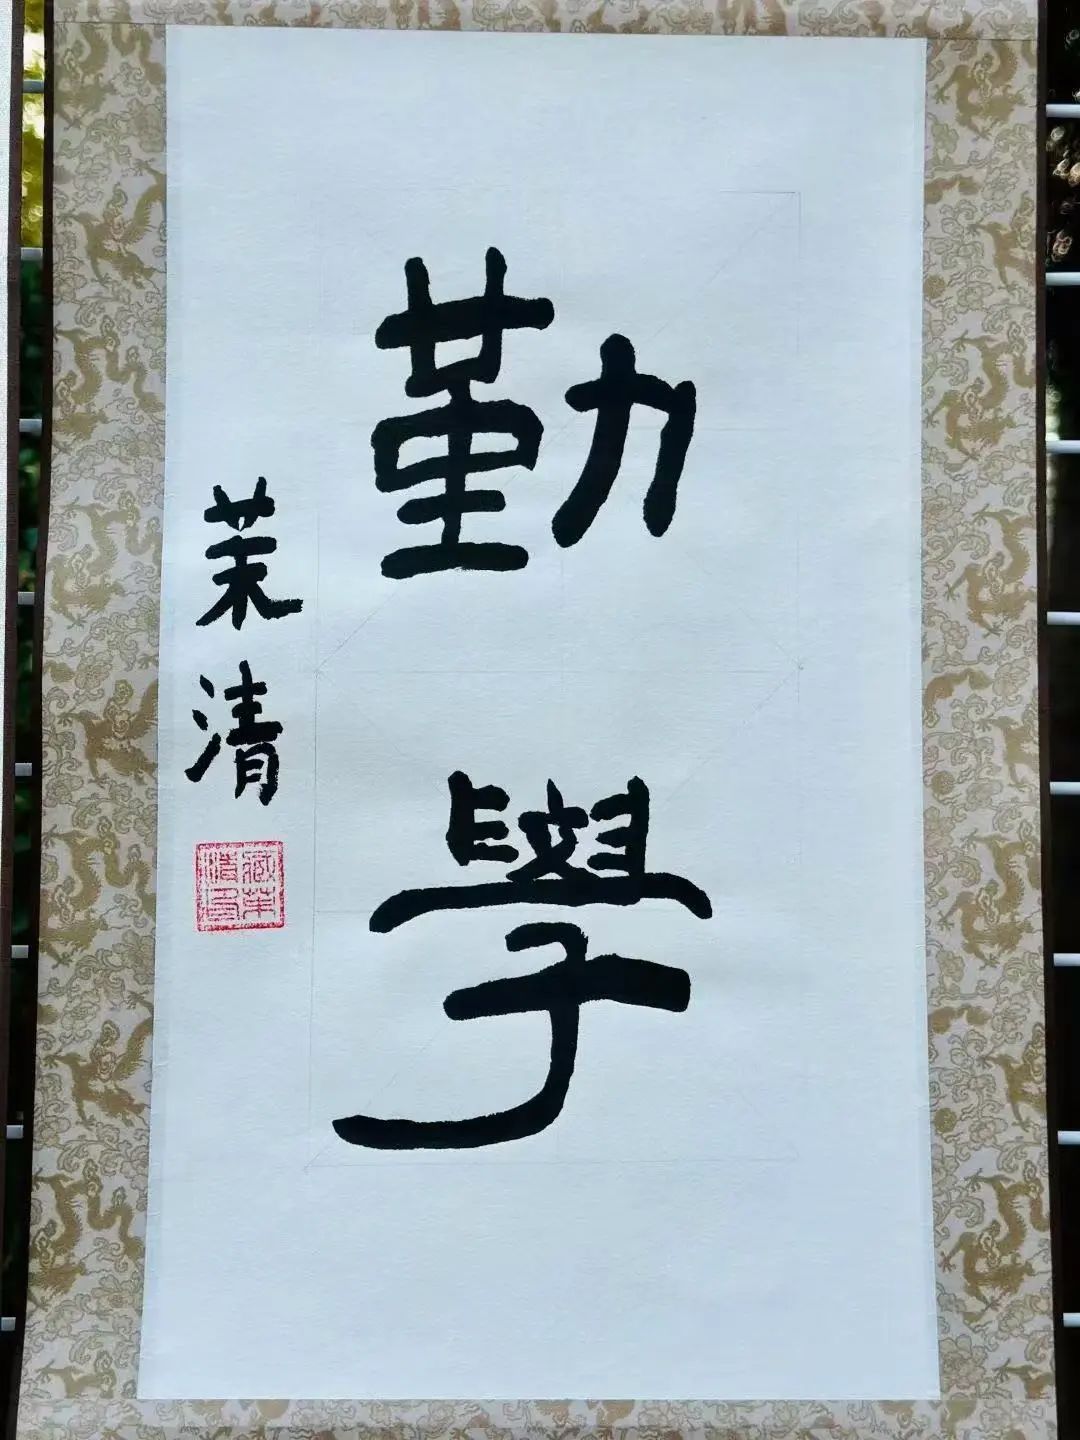 勤學
茉清